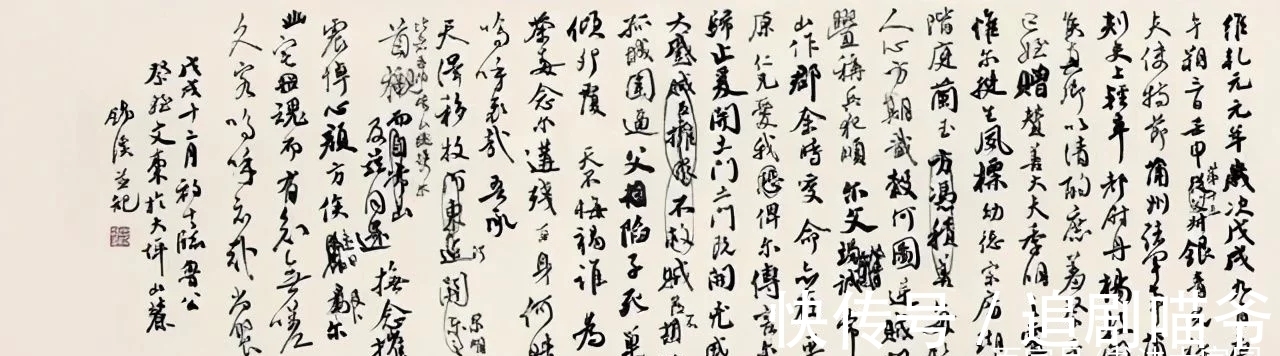 維乾元元年歲次戊戌九月
午朔三日壬申第十三叔銀青光
夫使持節蒲州諸軍事
刺史上輕車都尉丹楊縣
侯真卿以清酌庶羞祭
亡姪贈贊善大夫季明
惟爾挺生夙標幼德宗廟瑚
階庭蘭玉方憑積善
人心方期戩穀何圖逆賊
釁稱兵犯順爾父竭誠常
山作郡余時受命亦在平
原仁兄愛我恐俾爾傳言爾
歸止爰開土門土門既開兇威
大蹙賊臣擁眾不救賊臣不
孤城圍逼父擒陷子死巢
傾卵覆天不悔禍誰為
荼毒念爾遘殘百身何贖
嗚呼哀哉吾承
天澤移牧河東近河關
首櫬而自常山
及茲同還撫念摧
震悼心顏方俟遠日卜爾
幽宅魂而有知無嗟
久客嗚呼哀哉尚饗
戊戌十二月初十臨魯公
祭姪文東於大坪山麓
錫溪並記
快传号 / 追剧喵爷